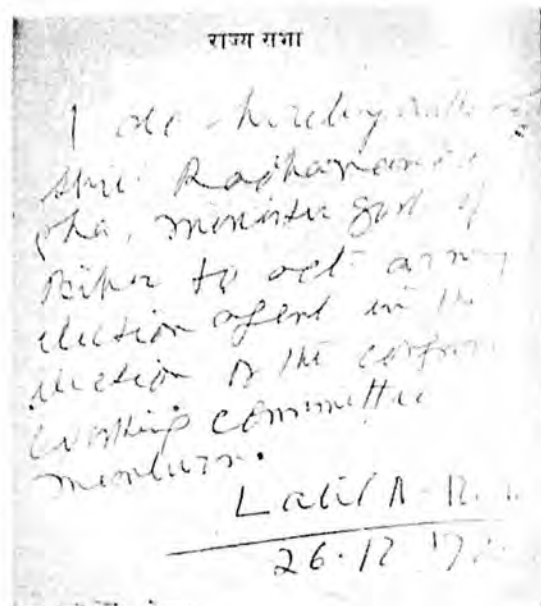 राज्य सभा
I do hereby
Shri Radhanandan
Jha, minister Govt of
Bihar to act as my
election agent in the
election of the congress
working committee
members.
Lalit N.
26.12.